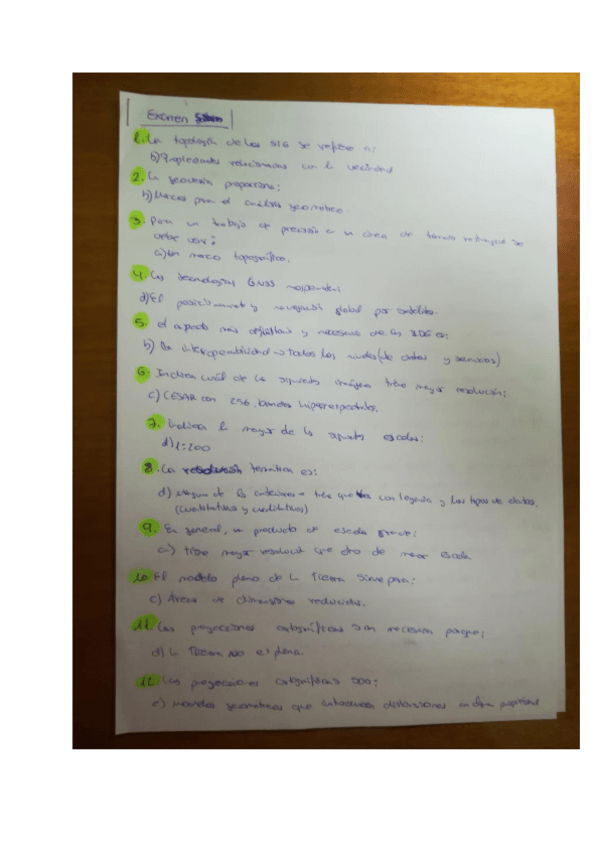 Examen
1. La topología de los SIG se refiere a:
b) Propiedades relacionadas con la vecindad
2. La geodesia proporciona:
b) Marcos para el análisis geométrico.
3. Para un trabajo de precisión en un área de tamaño se
debe usar:
a) Un marco topográfico.
4. Las tecnologías GNSS
d) El posicionamiento y navegación global por satélite.
5. el aspecto más y necesario de las IDE es:
b) La interoperatividad todos los nodos (de datos y servicios)
6. Indica cuál de las siguientes imágenes tiene mayor resolución:
c) CESAR con 256 bandas hiperespectrales.
7. Indica la mayor de las siguientes escalas:
d) 1:200
8. La resolución temática es:
d) ninguna de las anteriores tiene que ver con leyenda y los tipos de datos.
(cuantitativos y cualitativos)
9. En general, un producto de escala grande:
a) tiene mayor resolución que otro de menor escala
10. El modelo plano de la Tierra sirve para:
c) Áreas de dimensiones reducidas.
11. Las proyecciones cartográficas son necesarias porque:
d) la Tierra NO es plana.
12. Las proyecciones cartográficas son:
c) Modelos geométricos que introducen distorsiones en otra propiedad